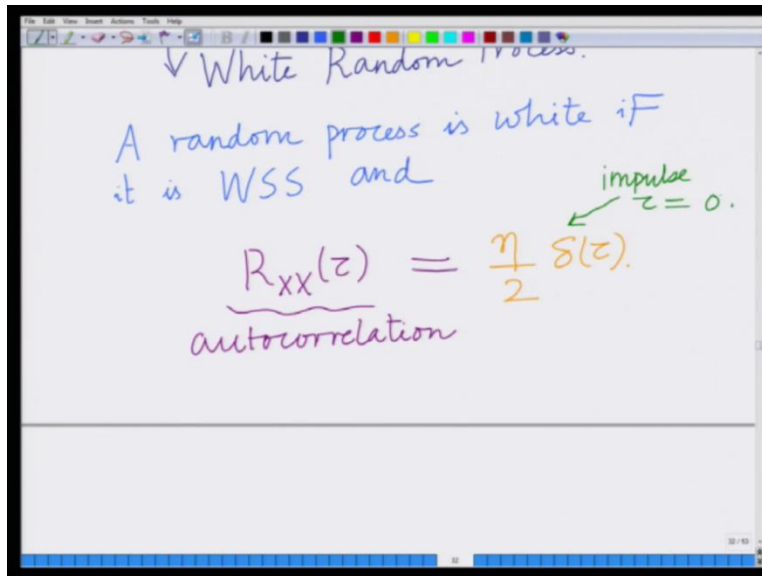 File Edit View Insert Actions Tools Help
White Random Process.
A random process is white if
it is WSS and
impulse
τ = 0.
R_XX(τ) = η/2 δ(τ).
autocorrelation
32 / 53
32